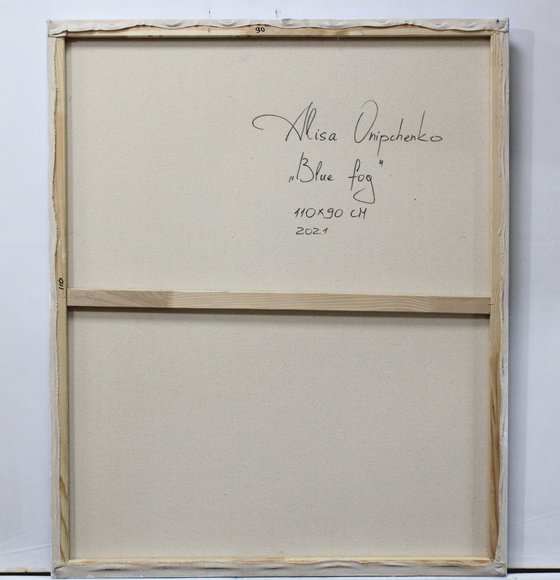 90
Alisa Onipchenko
„Blue fog"
110×90 СМ
2021
110